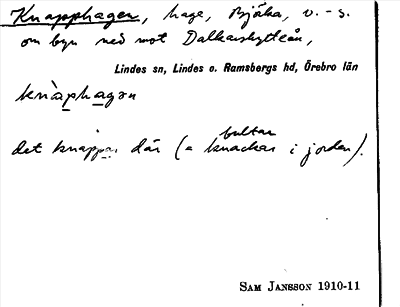 Knapphagen, hage, Bjöka, v.-s.
om byn ned mot Dalkarshytteån,
Lindes sn, Lindes o. Ramsbergs hd, Örebro län
knàphagən
bultar
det knäppar där (= knackar i jorden).
SAM JANSSON 1910-11